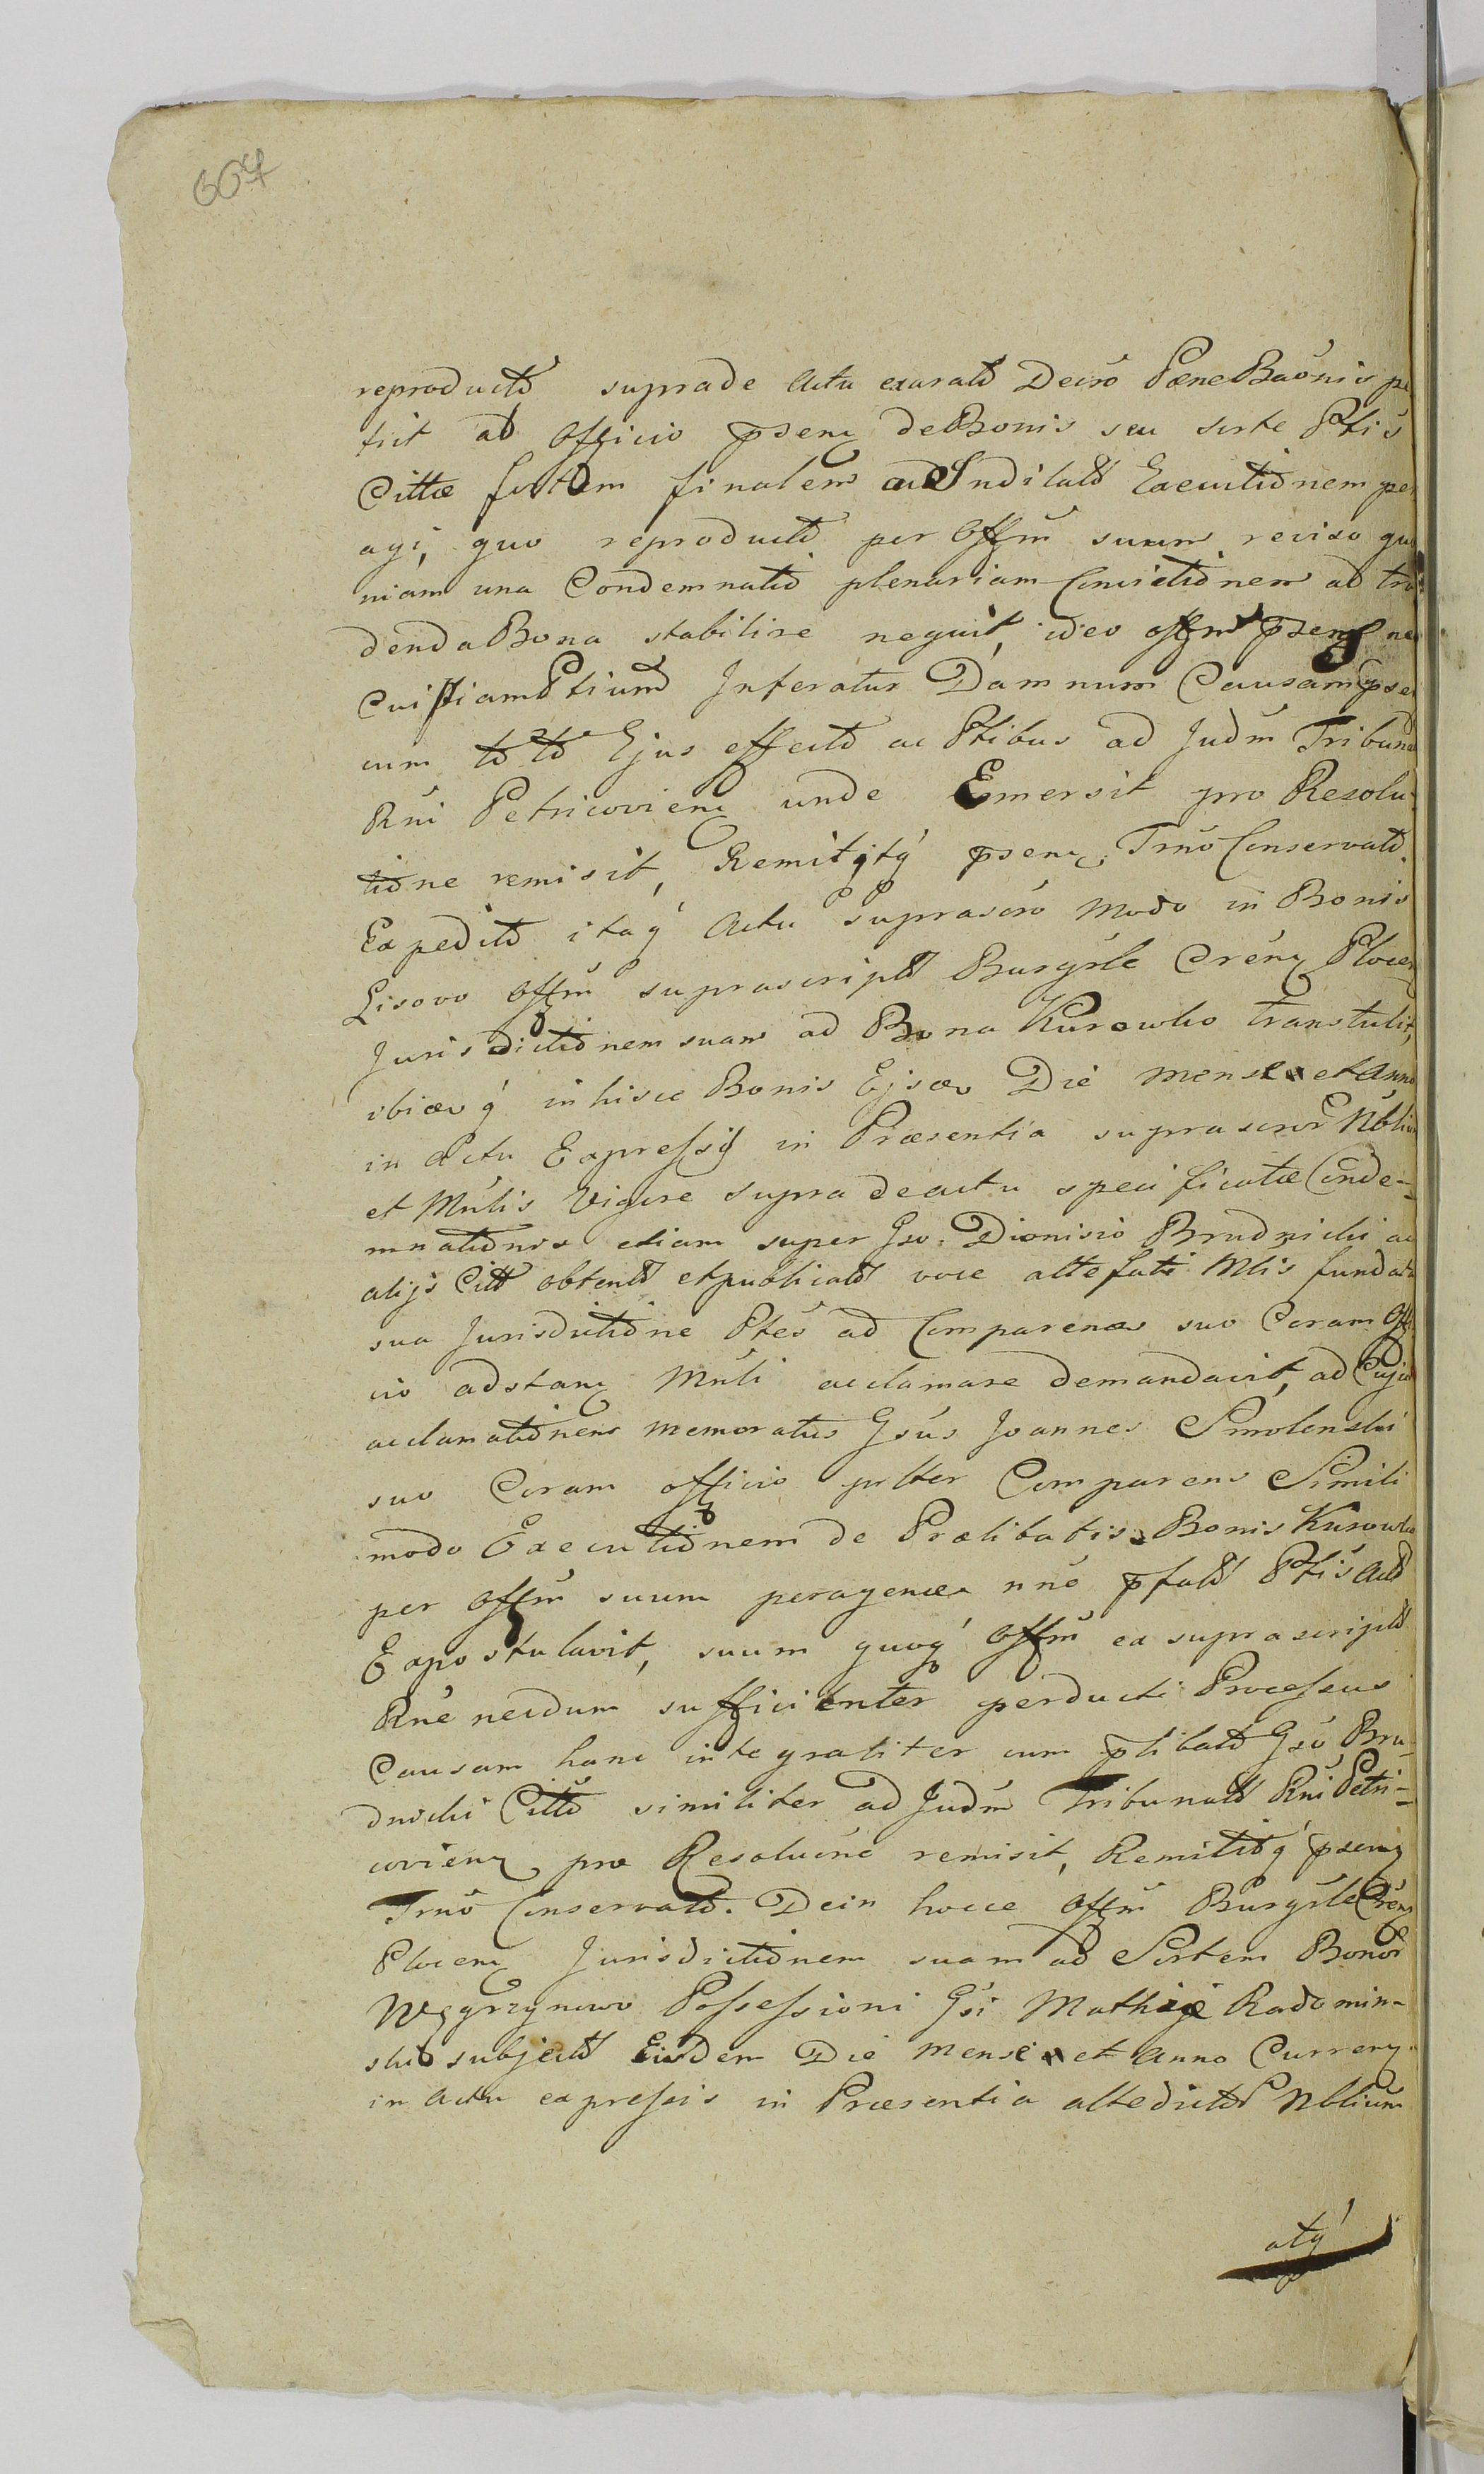 607
reproducto supra de Actu exarato Decro Pœnæ Baónis pe
tiit ab Officio psen de Bonis seu sorte Ptis
Cittæ fortem finalem ac Indilato Executionem per
agi, quo reproducto per Offm suum reviso quo
niam una Condemnatio plenariam Convictionem ad tra
denda Bona stabilire nequit, ideo offm psens ne
Cuipiam Ptium Inferatur Damnum Causam psen
cum toto Ejus effectu ac Ptibus ad Judm Tribunal
Rni Petricovien unde Emersit pro Resolu
tione remisit, Remititq psen. Trno Conservato.
Expedito itaq Actu suprascro modo in Bonis
Lisovo Offm suprascripto Burgsle Crens Plocen
Jurisdictionem suam ad Bona Kurowko transtulit,
ibiq in hisce Bonis Die mense et Anno
in Actu Expressis in Præsentia suprascror Nblium
et Mnlis Vigore supra de actu specificatæ Conde-
mnationis etiam super Gso. Dionisio Brudnicki ac
alijs Citt obtento et publicato voce attefati Mlis fundata
sua Jurisdictione Ptes ad Comparenas suo Coram Offi
cio adstan Mnli acclamare demandavit, ad Cujus
acclamationem memoratus Gsus Joannes Smolenski
suo Coram officio pltter Comparens Simili
modo Executionem de Prælibatis Bonis Kurowko
per Offm suum peragenæ nne pfato Ptis Act
Expostulavit, suum quoq Offm ex suprascripto
Rne necdum sufficienter perducti Processus
Causam hanc integraliter cum plibato Gso Bru-
dnicki Citto similiter ad Judm Tribunalt Rni Petri-
covien pro Resolucne remisit, Remititq psens
Trno Conservato. Dein hocce Offm Burgsle Crens
Plocen Jurisdictionem suam ad Sortem Bonor
Węgrzynowo Possessioni Gsi Mathiæ Radomin-
ski subjecto Eisdem Die mense et Anno Curren
in Actu expressis in Præsentia attedictor Nblium
atq